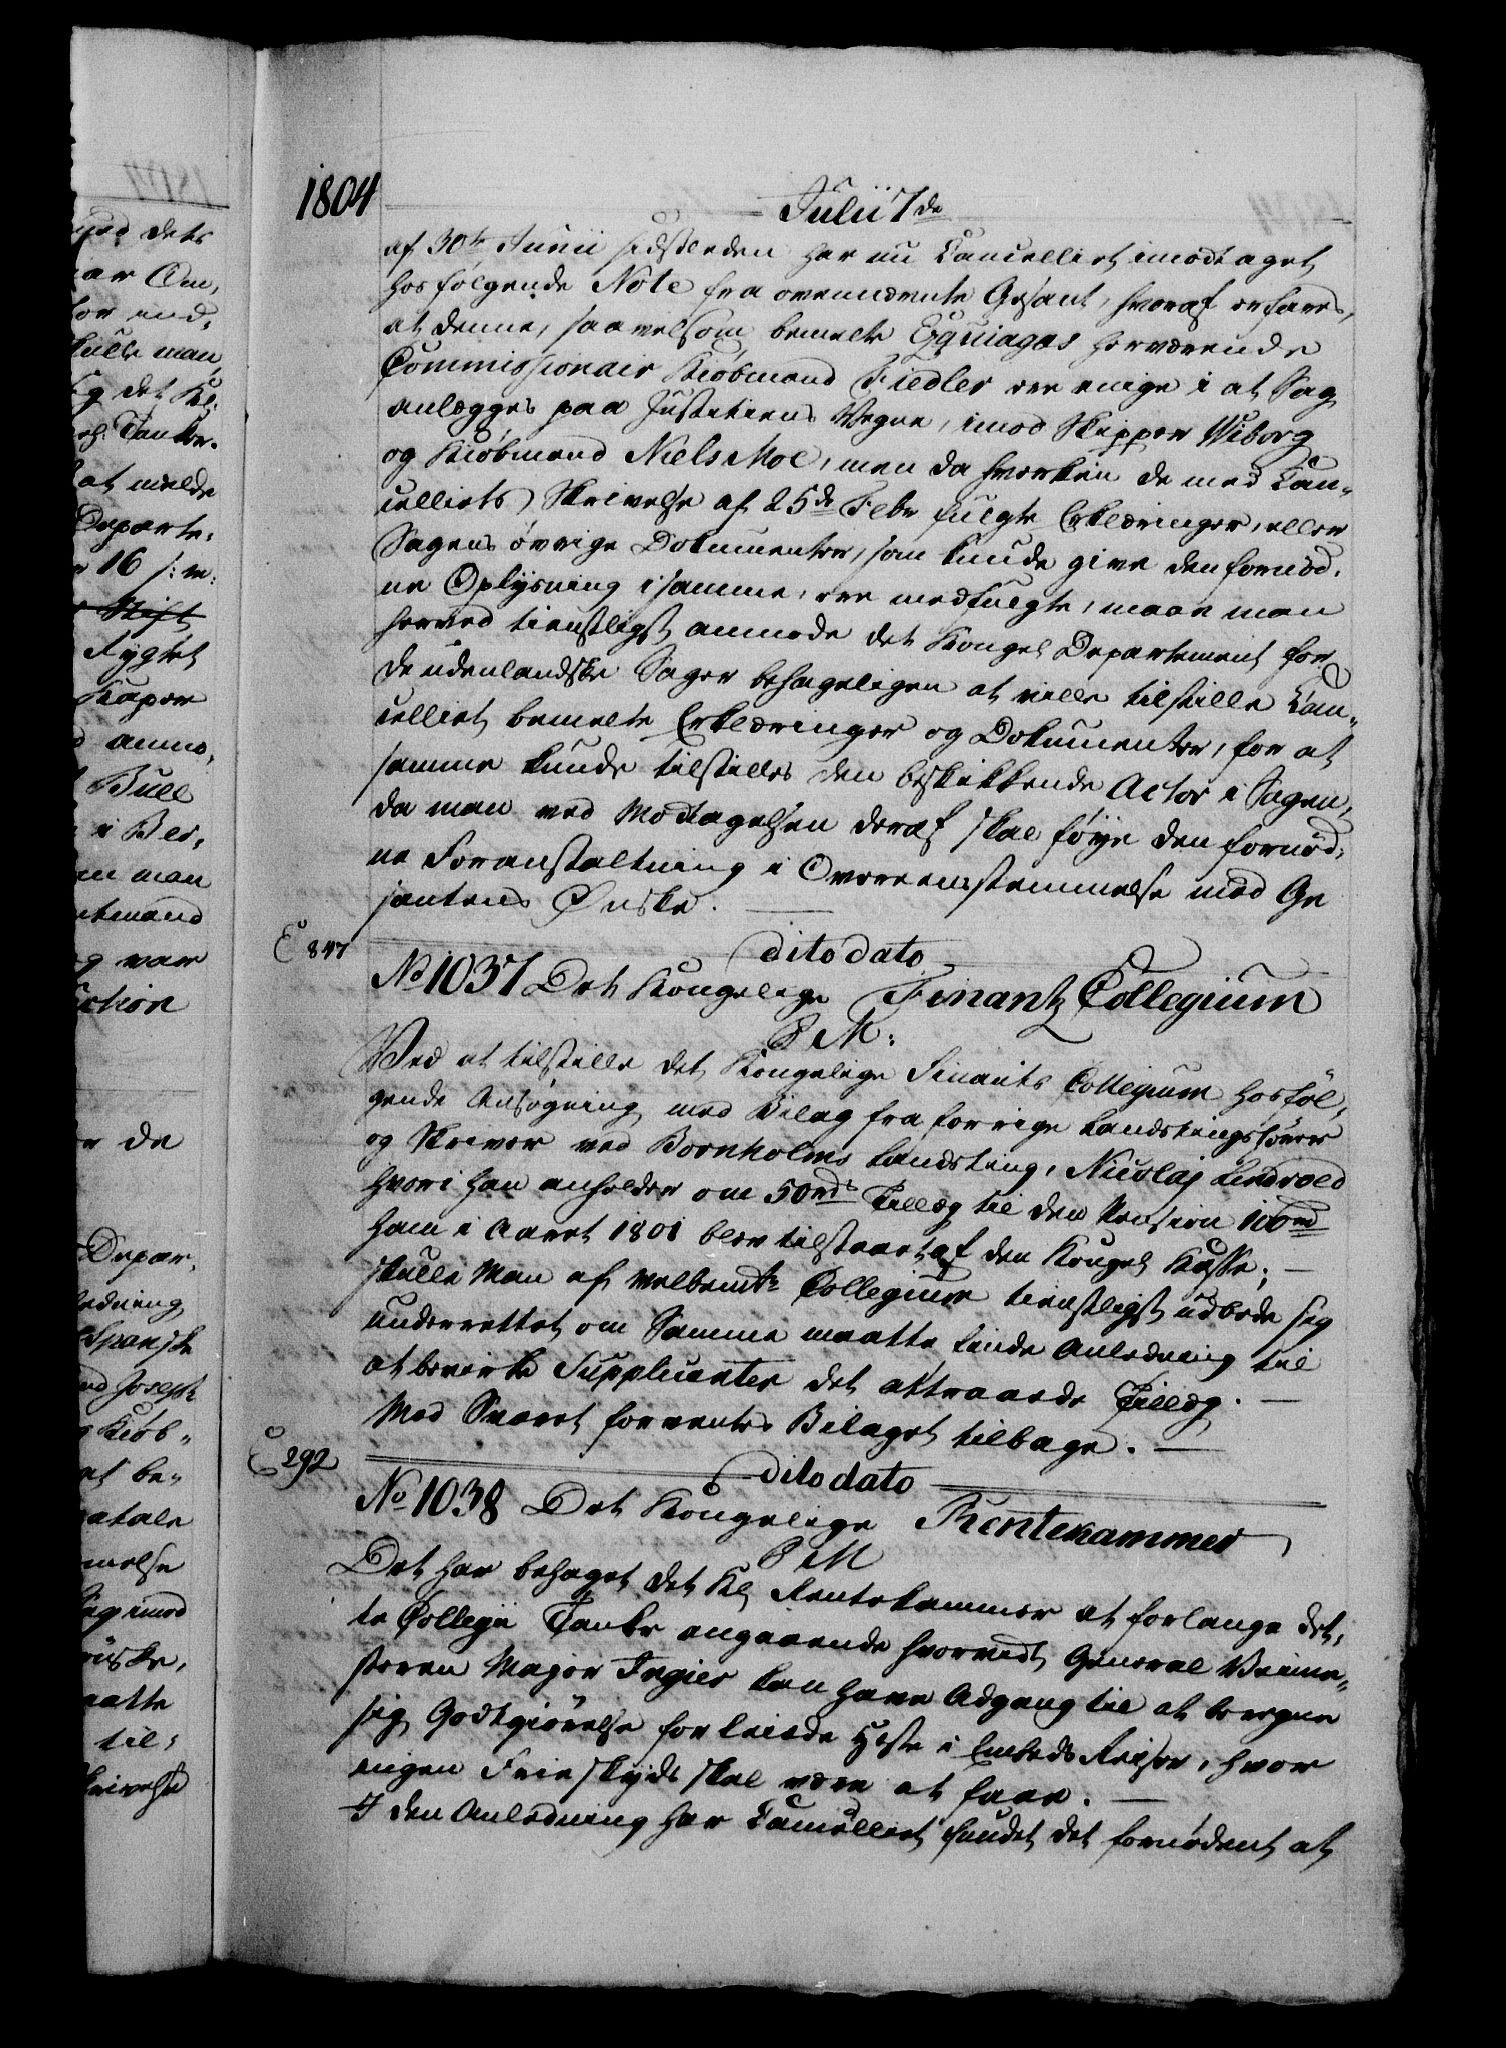 1804
Julii 7de
af 30te Junii sidstleden har nu Cancelliet imodtaget
hosfølgende Note fra ovennævnte Gesant, hvoraf erfares,
at denne, saavelsom bemelte Eguiagas herværende
Commissionair Kiøbmand Fiedler ere enige i at Sag
anlægges paa Justitiens Vegne, imod Skipper Wiborg
og Kiøbmand Niels Moe, men da hverken de med Can-
celliets Skrivelse af 25de Febr fulgte Erklæringer, eller
Sagens øvrige Dokumenter, som kunde give den fornød,
ne Oplysning i samme, ere medfulgte, maae man
herved tienstligst anmode det Kongel Departement for
de udenlandske Sager behageligen at ville tilstille Can-
celliet bemelte Erklæringer og Dokumenter, for at
samme kunde tilstilles den beskikkende Actor i Sagen,
da man ved Modtagelsen deraf skal føye den fornød,
ne Foranstaltning i Overeensstemmelse med Ge
santens Ønske.
E 847
dito dato
No 1037 Det Kongelige Finantz Collegium
P M:
Ved at tilstille det Kongelige Finants Collegium hosføl,
gende Ansøgning med Bilag fra forrige Landstingshører
og Skriver ved Bornholms Landsting, Nicolaj
hvori han anholder om 50rd Tillæg til den Pension 100rd
ham i Aaret 1801 blev tilstaaet af den Kongel Kasse;
skulle Man af Velbemte Collegium tienstligst udbede sig
underrettet om Samme maatte finde Anledning til
at bevirke Supplicanten det attraaede Tillæg.
Med Svaret forventes Bilaget tilbage.
E 292
dito dato
No 1038 Det Kongelige Rentekammer
P M
Det har behaget det Kl Rentekammer at forlange det,
te Collegii Tanke angaaende hvorvidt General Veime-
steren Major Ingier kan have Adgang til at beregne
sig Godtgiørelse for leiede Heste i Embeds Reiser, hvor
ingen Frie Skyds skal være at faae.
I den Anledning har Cancelliet fundet det fornødent at